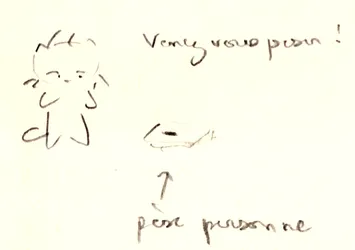 Venez vous peser !
pèse personne